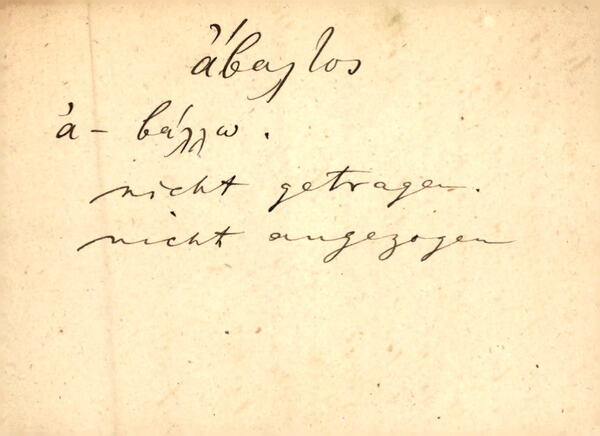 ἄβαλτος
ἀ- βάλλω.
nicht getragen.
nicht angezogen